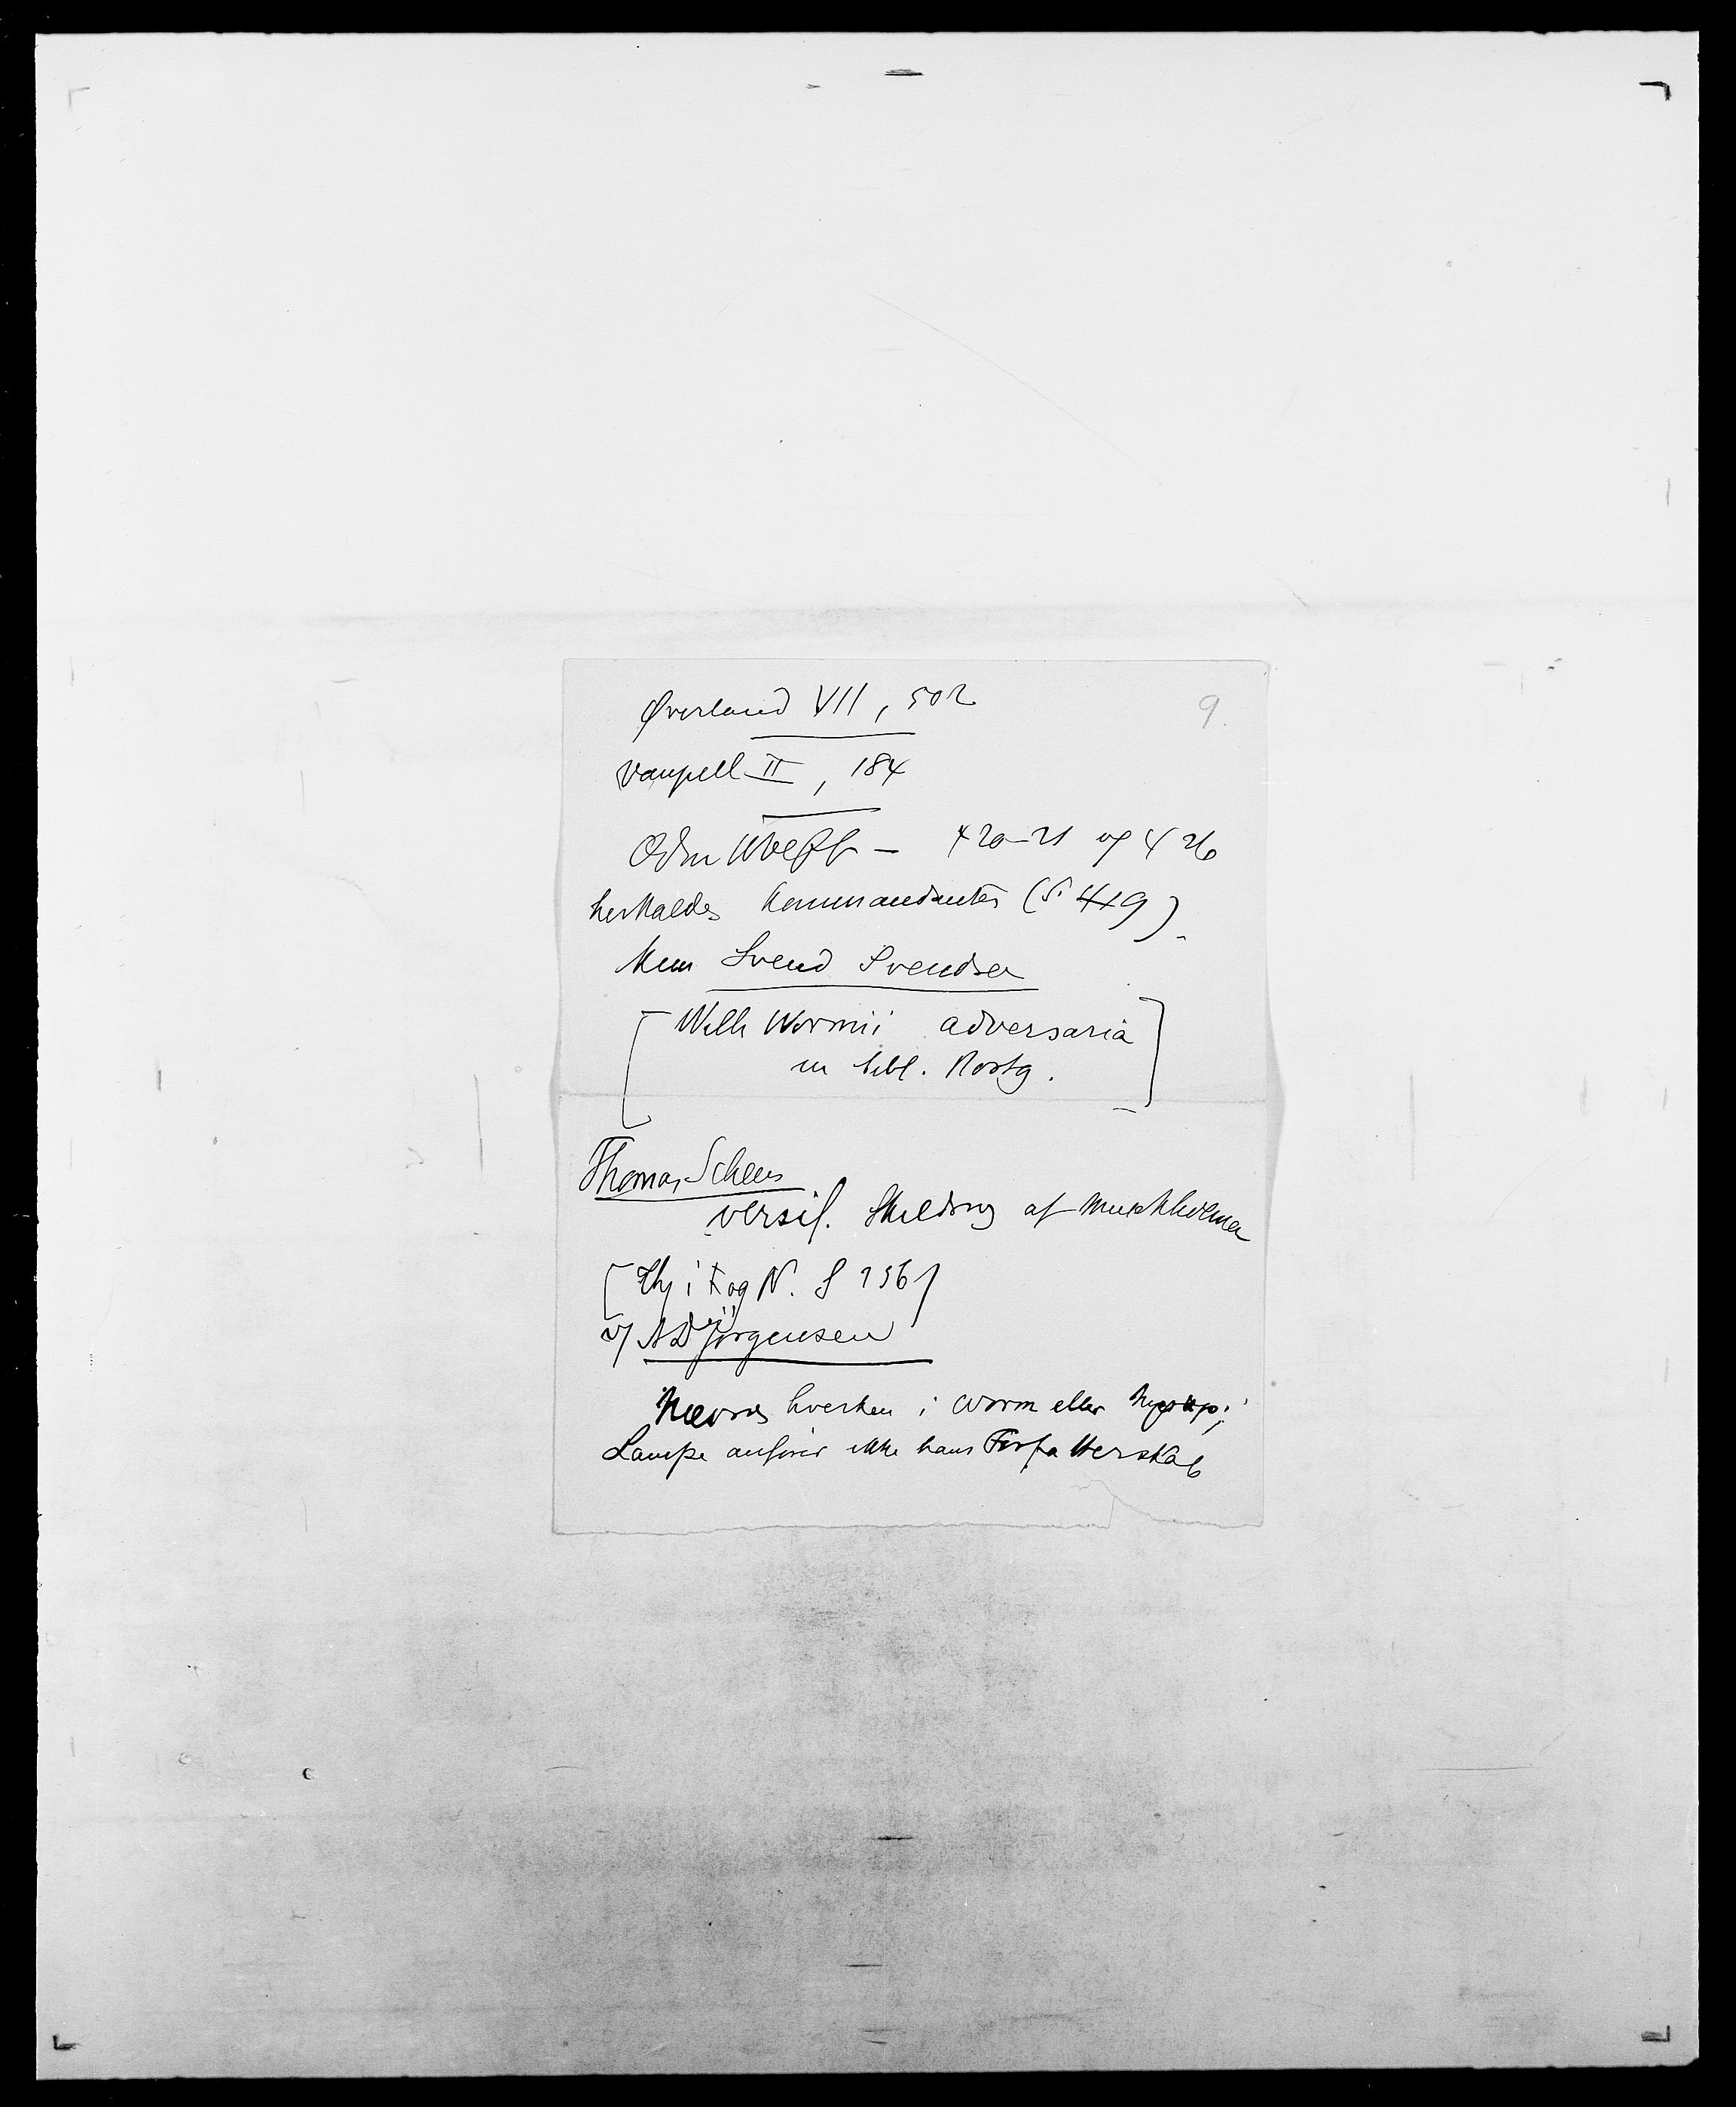 9.
Øverland VII, 502
Vaupell II, 184
Odin Wolff — 420-21 og 426
her kaldes Kommandanten (S. 419)
kun Svend Svendsen
[Willi Wormii adversaria
in bibl. Rostg.]
Thomas Schees
versif. Skildring af Munkholmen
[Thj i Kog N. S 256]
v/ A D Jørgensen
Nævnes hverken i Worm eller Nyerup;
Lampe anfører ikke hans Forfatterskab